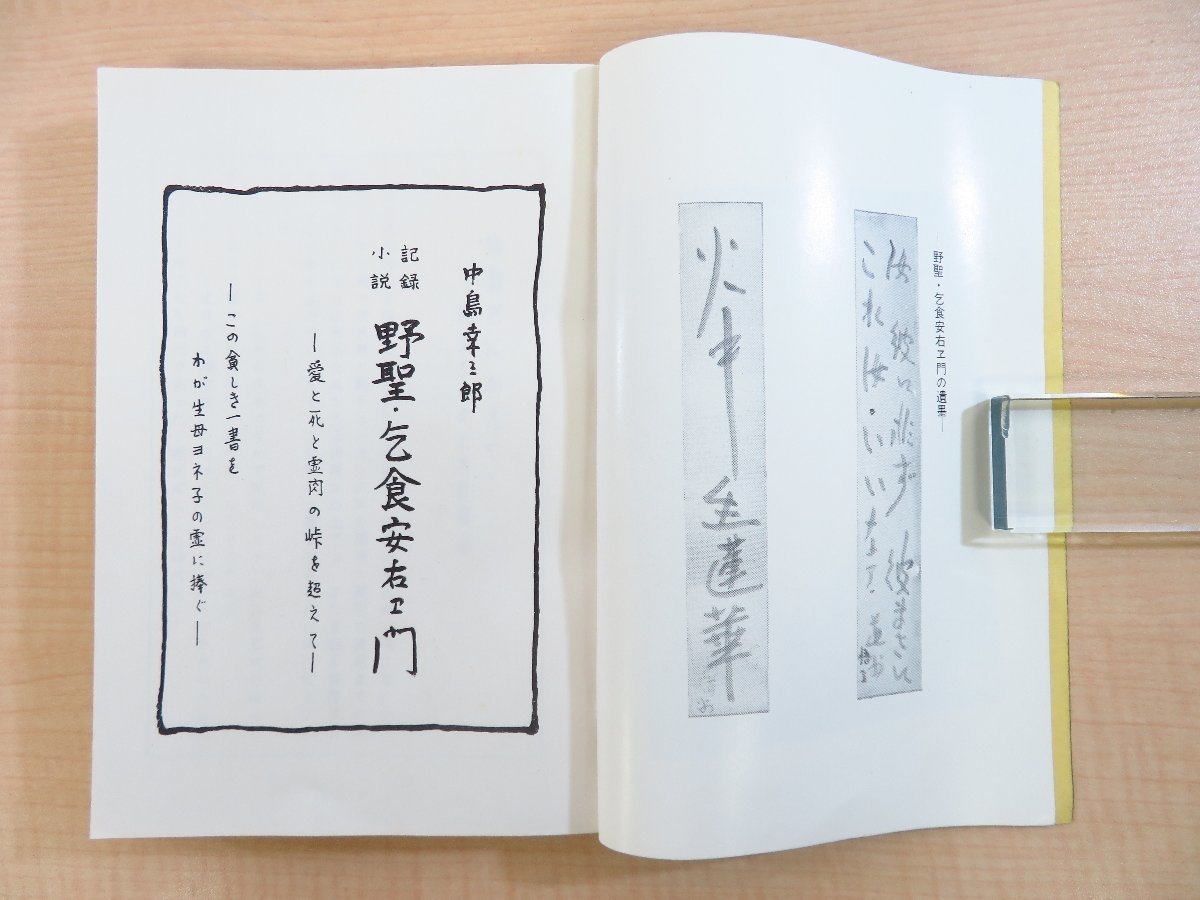 野聖・乞食安右ヱ門の遺墨―
これ汝・
火中生蓮華
中島幸三郎
記録
小説
野聖・乞食安右ヱ門
―愛と死と霊肉の峠を超えて―
―この貧しき一書を
わが生母ヨネ子の霊に捧ぐ―